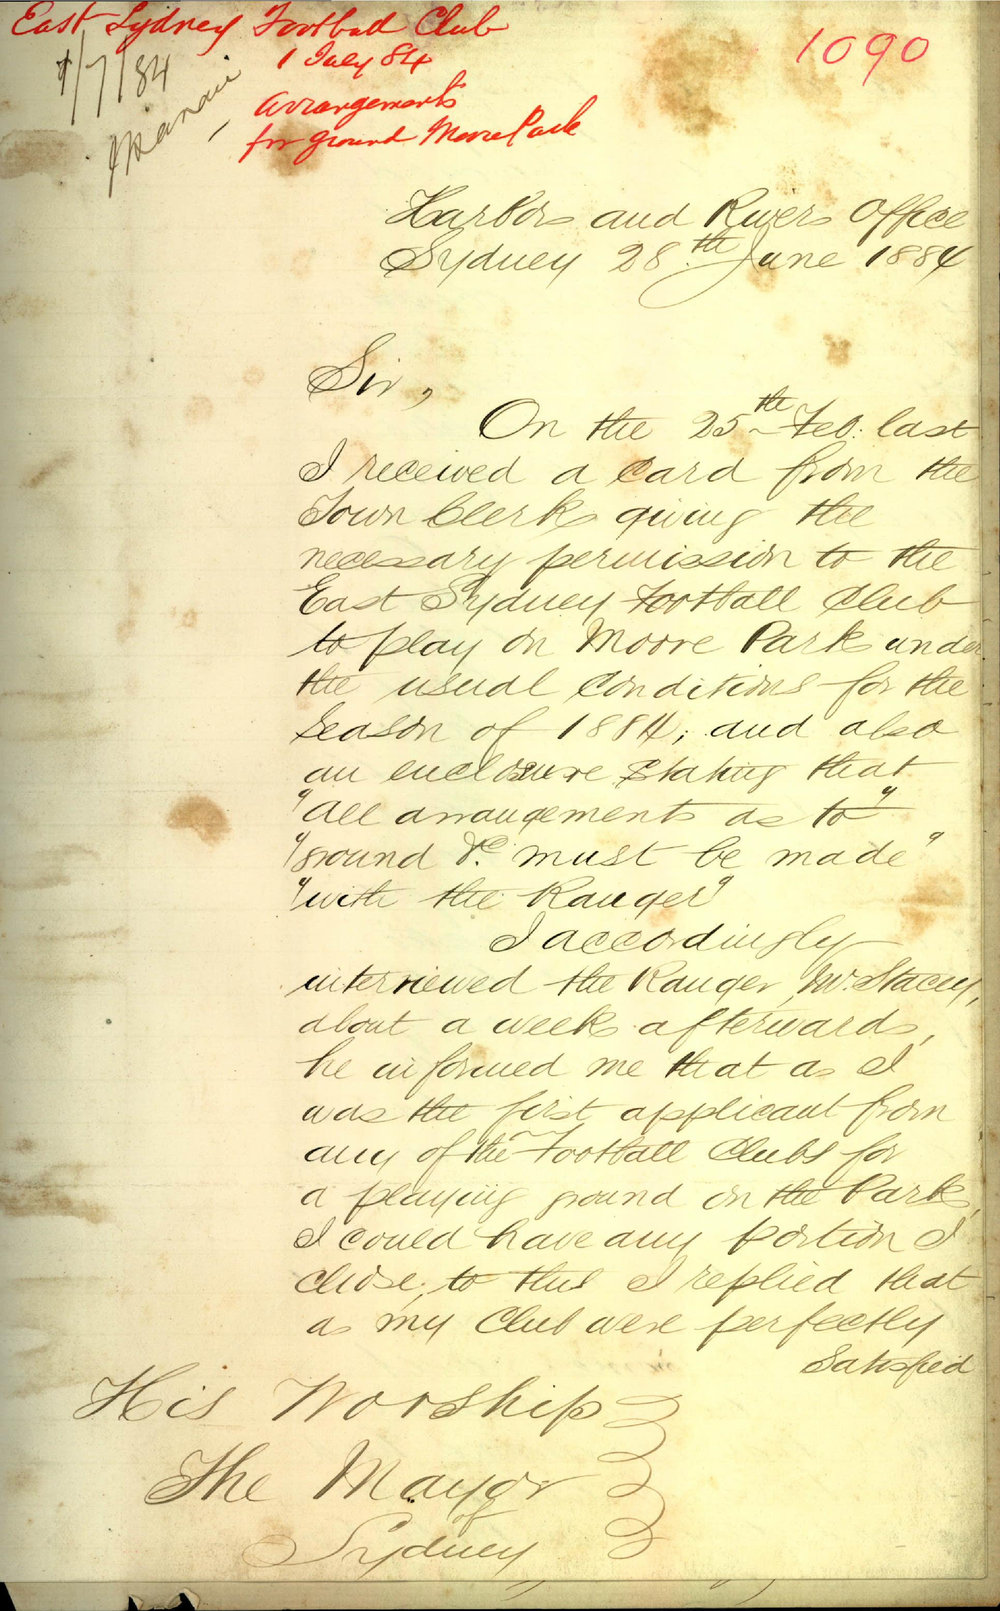 East Sydney Football Club
1 July 84
Arrangements
for ground Moore Park
1090
1/7/84
Harbors and Rivers Office
Sydney 28th June 1884
Sir,
On the 25th Feb. last
I received a card from the
Town Clerk giving the
necessary permission to the
East Sydney Football Club
to play on Moore Park under
the usual conditions for the
Season of 1884; and also
an enclosure stating that
"all arrangements as to"
"ground &c. must be made"
"with the Ranger"
I accordingly
interviewed the Ranger, Mr. Stacey,
about a week afterwards,
he informed me that as I
was the first applicant from
any of the Football Clubs for
a playing ground on the Park,
I could have any portion I
chose; to this I replied that
as my Club were perfectly
satisfied
His Worship
The Mayor
of
Sydney